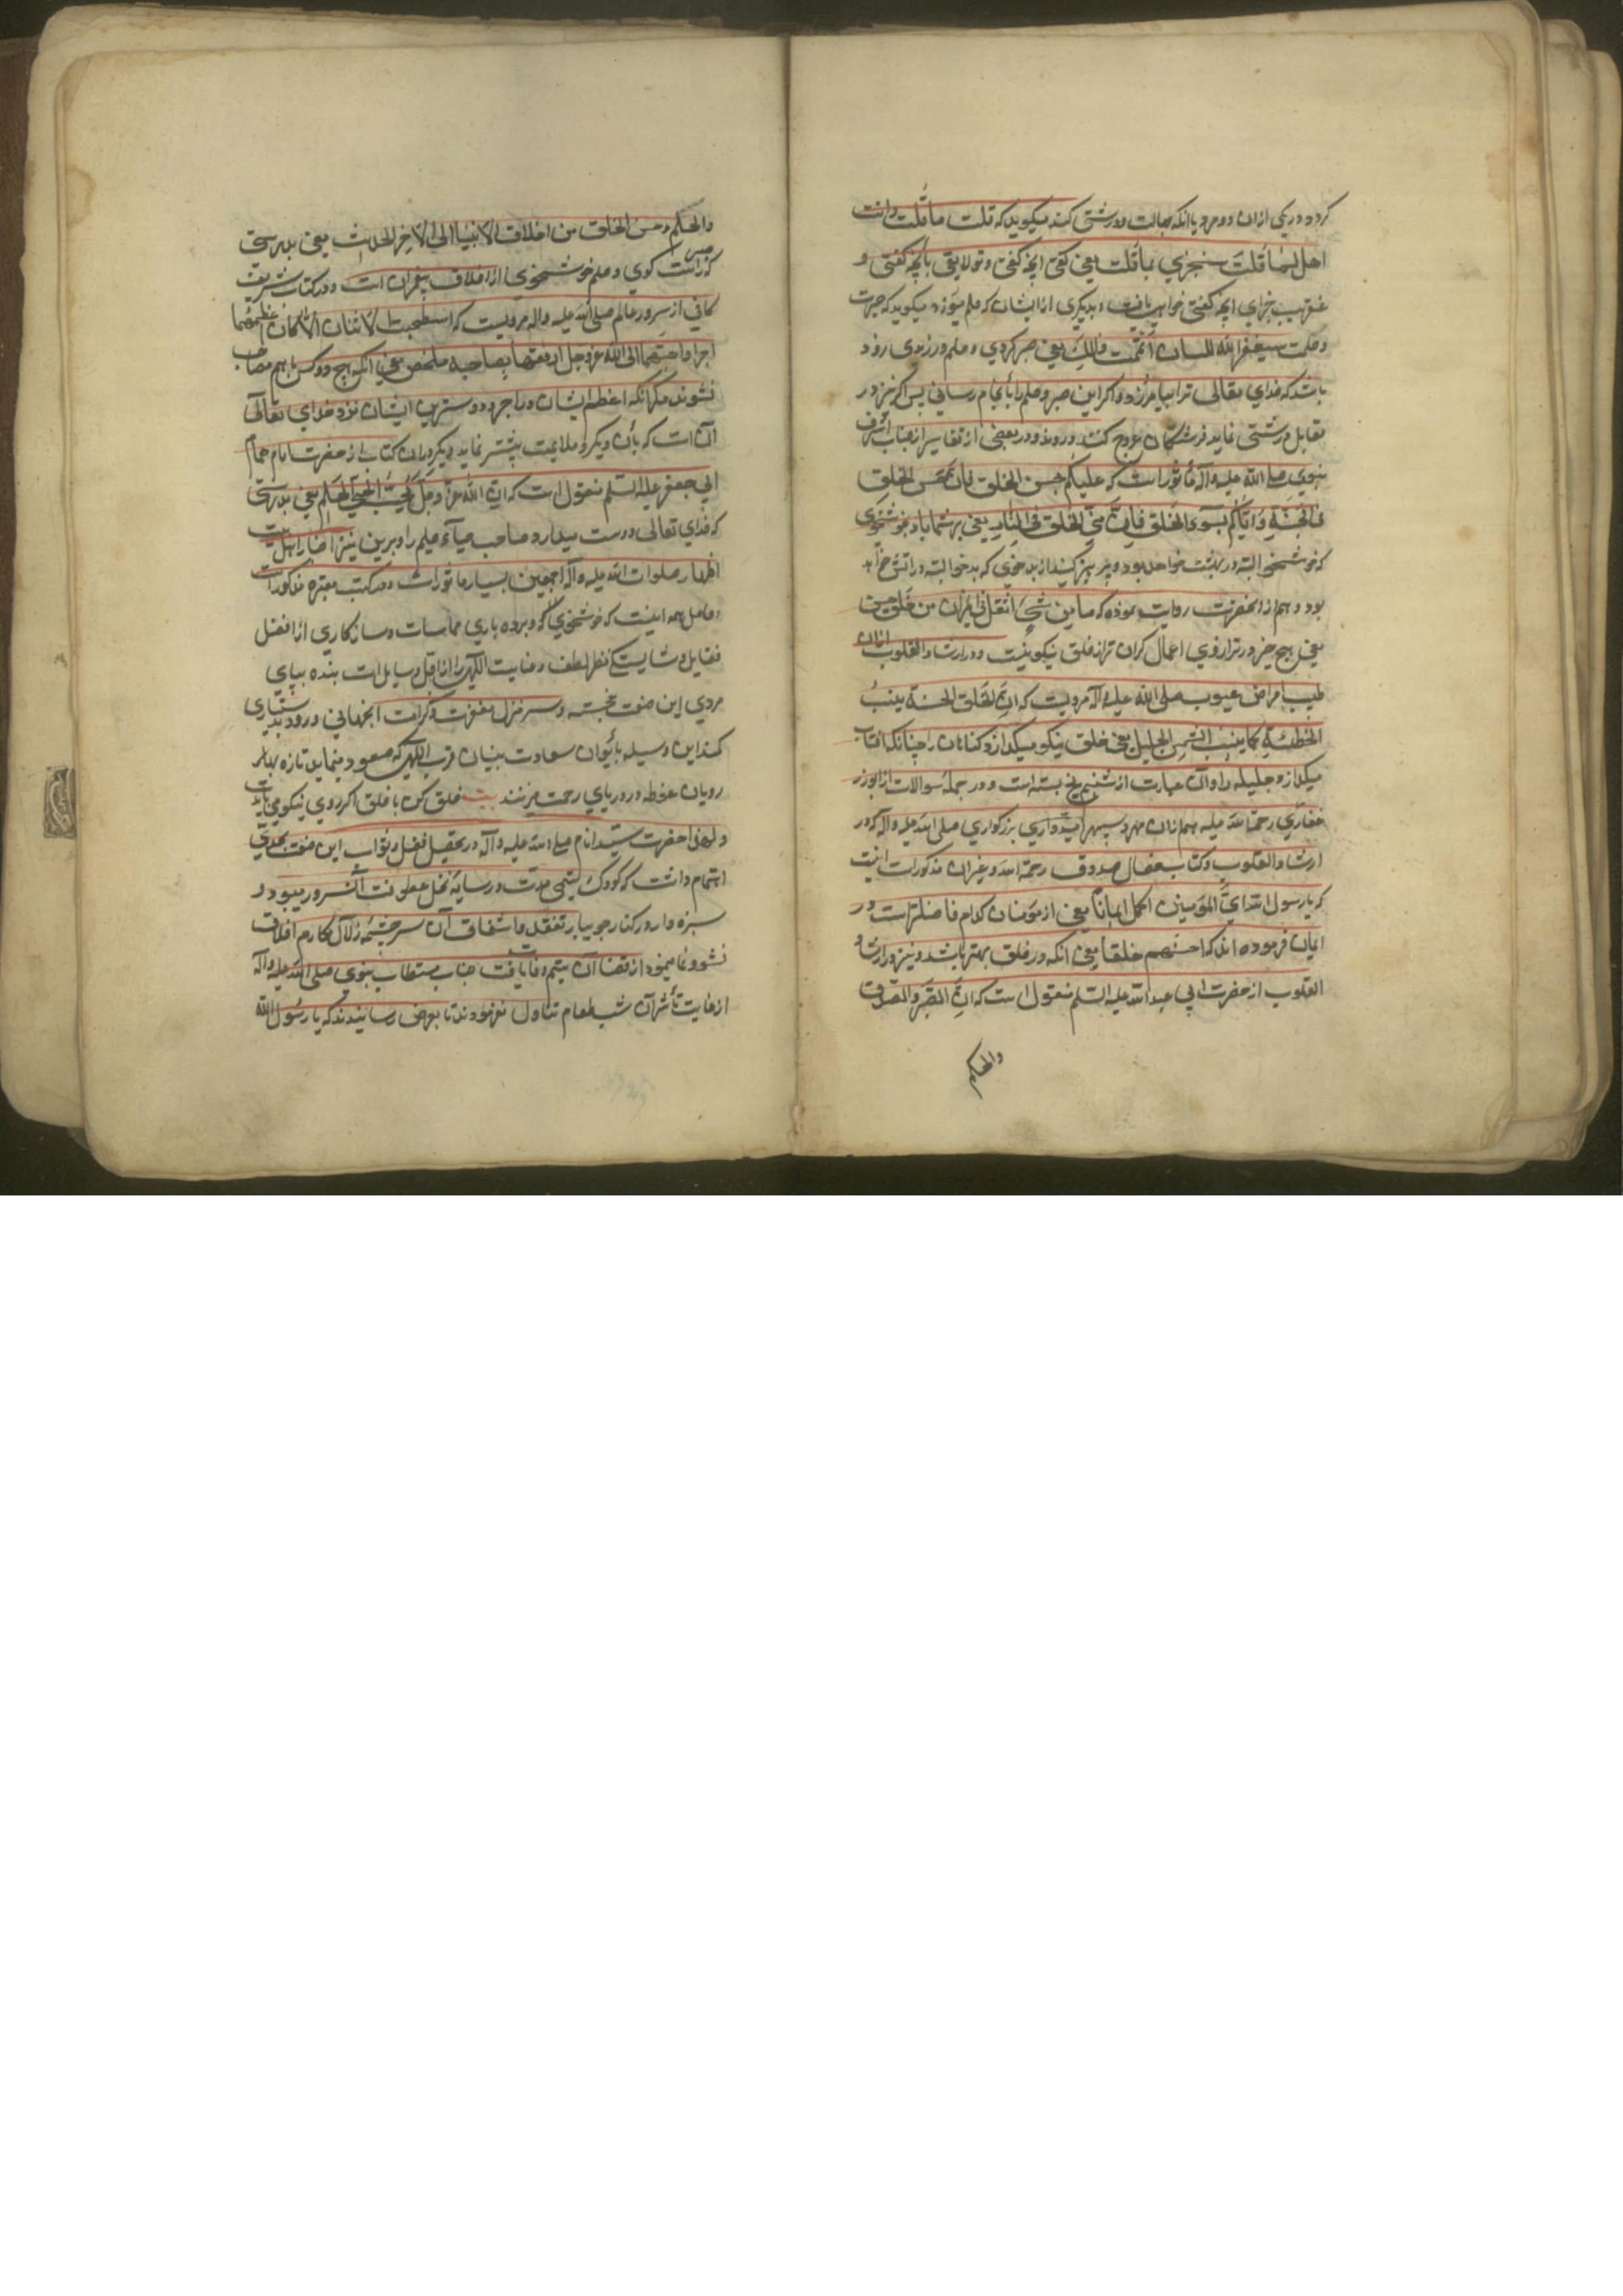 کردد در یکی از ان دو مرد باانکه جهالت و درشتی کند میکویند که قلت ما قلت و انت
اهل لما قلت ستجزی بما قلت یعنی کفتی انچه کفتی و تو لایقی بانچه کفتی و
عنقریب جزای انچه کفتی خواهی یافت و بدیکری از ایشان که حلم میورزد میکویند که صبرت
و حلمت سیغفر الله لک ان اتممت ذالک یعنی صبر کردی و حلم ورزیدی زود
باشد که خدای تعالی ترا بیامرزد و اکر این صبر و حلم را بانجام رسانی پس اکر نیز در
مقابل درشتی نماید فرشتکان عروج کنند و روند و در بعضی از تفاسیر از جناب اشرف
نبوی صلی الله علیه و آله مأثور است که علیکم بحسن الخلق فان حسن الخلق
فی الجنة و ایاکم بسوء الخلق فان سئ الخلق فی النار یعنی بر شما باد بخوشخوی
که خوشخو البته در بهشت خواهد بود و پرهیز کنید از بدخوی که بدخو البته در اتش خواهد
بود و هم از انحضرت روایت نموده که ما من شئ اثقل فی المیزان من خلق حسن
یعنی هیچ چیز در ترازوی اعمال کران تر از خلق نیکو نیست و در ارشاد القلوب از ان
طبیب امراض عیوب صلی الله علیه و آله مرویست که ان الخلق الحسنة یذیب
الخطیئة کما یذیب الشمس الجلید یعنی خلق نیکو میکدازد کناهان را چنانکه افتاب
میکدازد جلید را و آن عبارت از شبنم یخ بسته است و در جمله سوالات ابوذر
غفاری رحمة الله علیه بزرکواری صلی الله علیه و آله که در
ارشاد القلوب و کتاب خصال صدوق رحمه الله و غیر ان مذکور است اینست
که یا رسول الله ای المؤمنین اکمل ایمانا یعنی از مؤمنان کدام فاضلتر است در
ایمان فرموده اند که احسنهم خلقا یعنی انکه در خلق بهتر باشد و نیز در ارشاد
القلوب از حضرت ابی عبدالله علیه السلم منقول است که ان الصبر و الصدق
والحلم
والحلم و حسن الخلق من اخلاق الانبیا الی الاخر الحدیث یعنی بدرستی
که صبر و راست کوی و حلم و خوشخوی از اخلاق پیغمبران است و در کتاب شریف
کافی از سرور عالم صلی الله علیه و اله مرویست که ما اصطحب اثنان الا کان اعظمهما
اجرا و احبهما الی الله عز و جل ارفقهما بصاحبه ملخص معنی انکه هیچ دو کس با هم مصاحب
نشوند مکر انکه اعظم ایشان در اجر و دوسترین ایشان نزد خدای تعالی
آن است که بأن دیکر رفق و ملایمت بیشتر نماید و دیکر در ان کتاب از حضرت امام همام
ابی جعفر علیه السلم منقول است که ان الله عز و جل یحب الحیی الحلیم یعنی بدرستی
که خدای تعالی دوست میدارد صاحب حیآء حلیم را و برین نیز اخبار اهل بیت
اطهار صلوات الله علیه و آله اجمعین بسیار مأثور است و در کتب معتبره مذکور است
و حاصل همه اینست که خوشخوی و برده باری و سازکاری از افضل
فضایل و شایستکی منظر لطف و عنایت الهی را از اقل وسایل است بنده بپای
مردی این صفت خجسته بسر منزل مغفرت و کرامت انجهانی ورود بدستیاری
کمند این وسیله بایوان سعادت بنیان قرب الهی که صعود مینماید تازه بهار
رویان غوطه در دریای رحمت میزنند بیت خلق کن با خلق اکر روی نیکو می بایدت
و لهذا حضرت سید انام صلی الله علیه و آله در تحصیل فضل و ثواب این صفت بحدی
اهتمام داشت که کودک یتیمی مدت در سایه نخل عطوفت آنسرور میبود و
سبزه وار در کنار جویبار تفقد و اشفاق آن سرچشمه زلال مکارم اخلاق
نشو و نما مینمود از قضا آن یتیم وفات یافت جناب مستطاب نبوی صلی الله علیه و آله
از غایت تأثر آن شب طعام تناول نفرمودند تا بعرض رسانیدند که یا رسول الله